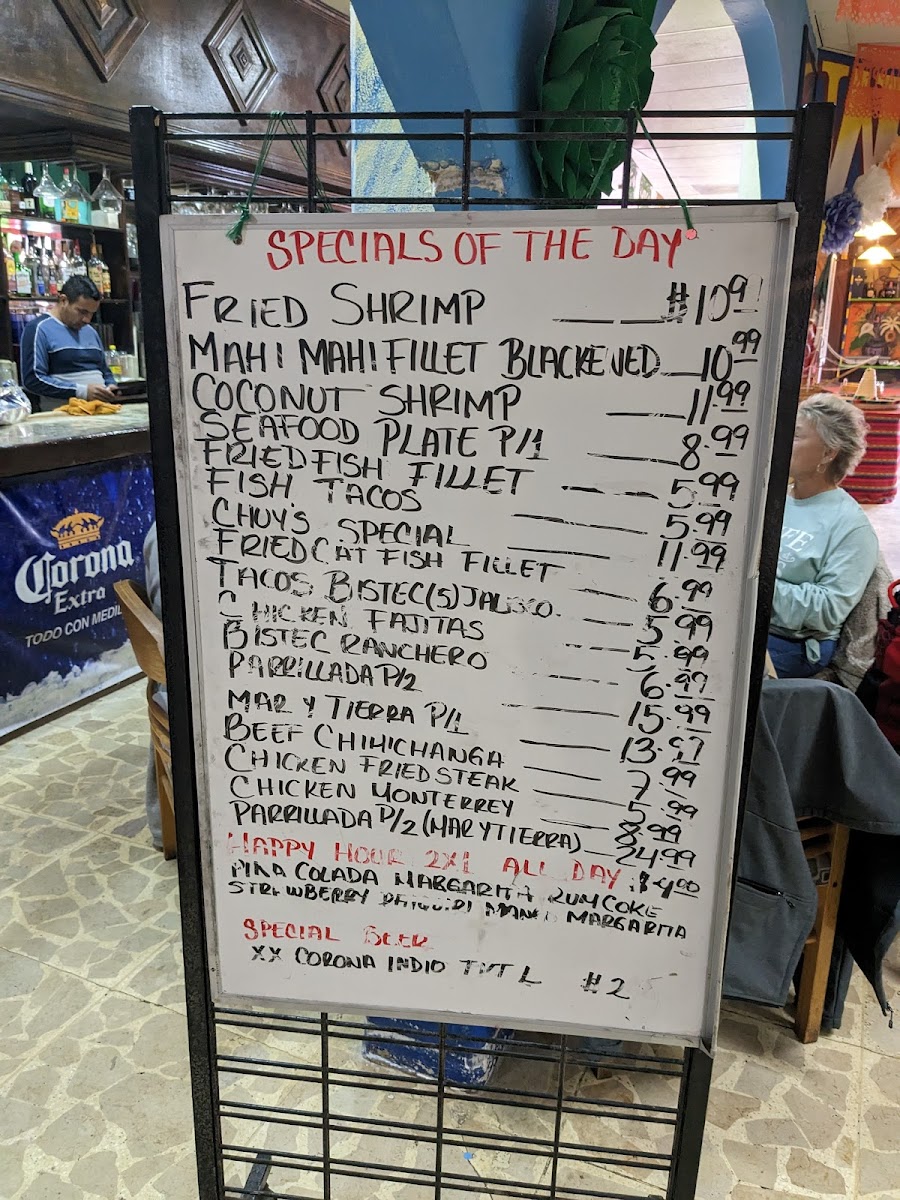 SPECIALS OF THE DAY
FRIED SHRIMP $10.9
MAHI MAHI FILLET BLACKENED 10.99
COCONUT SHRIMP 11.99
SEAFOOD PLATE P/1 8.99
FRIED FISH FILLET 5.99
FISH TACOS 5.99
CHUY'S SPECIAL 11.99
FRIED CAT FISH FILLET 6.99
TACOS BISTEC(5) JALISCO. 5.99
CHICKEN FAJITAS 5.99
BISTEC RANCHERO 6.99
PARRILLADA P/2 15.99
MAR Y TIERRA P/1 13.97
BEEF CHIMICHANGA 7.99
CHICKEN FRIED STEAK 5.99
CHICKEN MONTERREY 8.99
PARRILLADA P/2 (MAR Y TIERRA) 24.99
HAPPY HOUR 2X1 ALL DAY $4.00
PIÑA COLADA MARGARITA RUM COKE
STRAWBERRY DAIQUIRI MANGO MARGARITA
SPECIAL BEER
XX CORONA INDIO $2
Corona
Extra
TODO CON MEDI